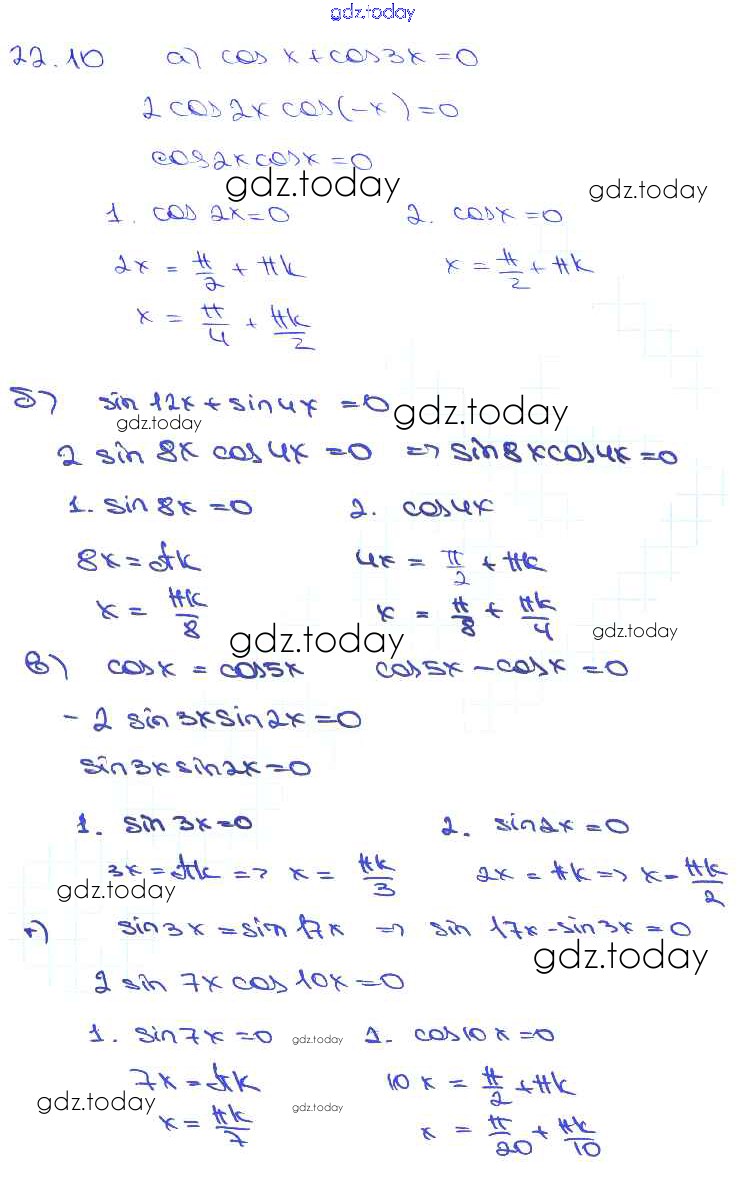 gdz.today
22.10 а) cos x + cos 3x = 0
2 cos 2x cos(-x) = 0
cos 2x cos x = 0
gdz.today gdz.today
1. cos 2x = 0 2. cos x = 0
2x = π/2 + πk x = π/2 + πk
x = π/4 + πk/2
б) sin 12x + sin 4x = 0 gdz.today
gdz.today
2 sin 8x cos 4x = 0 => sin 8x cos 4x = 0
1. sin 8x = 0 2. cos 4x
8x = πk 4x = π/2 + πk
x = πk/8 x = π/8 + πk/4
gdz.today gdz.today
в) cos x = cos 5x cos 5x - cos x = 0
-2 sin 3x sin 2x = 0
sin 3x sin 2x = 0
1. sin 3x = 0 2. sin 2x = 0
3x = πk => x = πk/3 2x = πk => x = πk/2
gdz.today
г) sin 3x = sin 17x => sin 17x - sin 3x = 0
gdz.today
2 sin 7x cos 10x = 0
1. sin 7x = 0 gdz.today 2. cos 10x = 0
7x = πk 10x = π/2 + πk
gdz.today gdz.today
x = πk/7 x = π/20 + πk/10